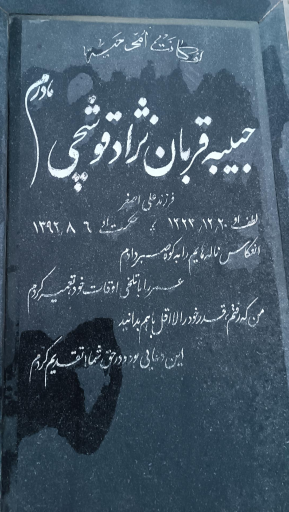 مادرم
حبیبه قربان نژاد قوشچی
فرزند علی اصغر
۱۳۲۳،۱۲،۲۰ ۱۳۹۲،۸،۶
انعکاس ناله هایم را به کوه صبر دادم
عمر را با تلخی اوقات خود تعبیر کردم
من که رفتم، قدر خود را لااقل با هم بدانید
این دعایی بود و در حق شما تقدیم کردم